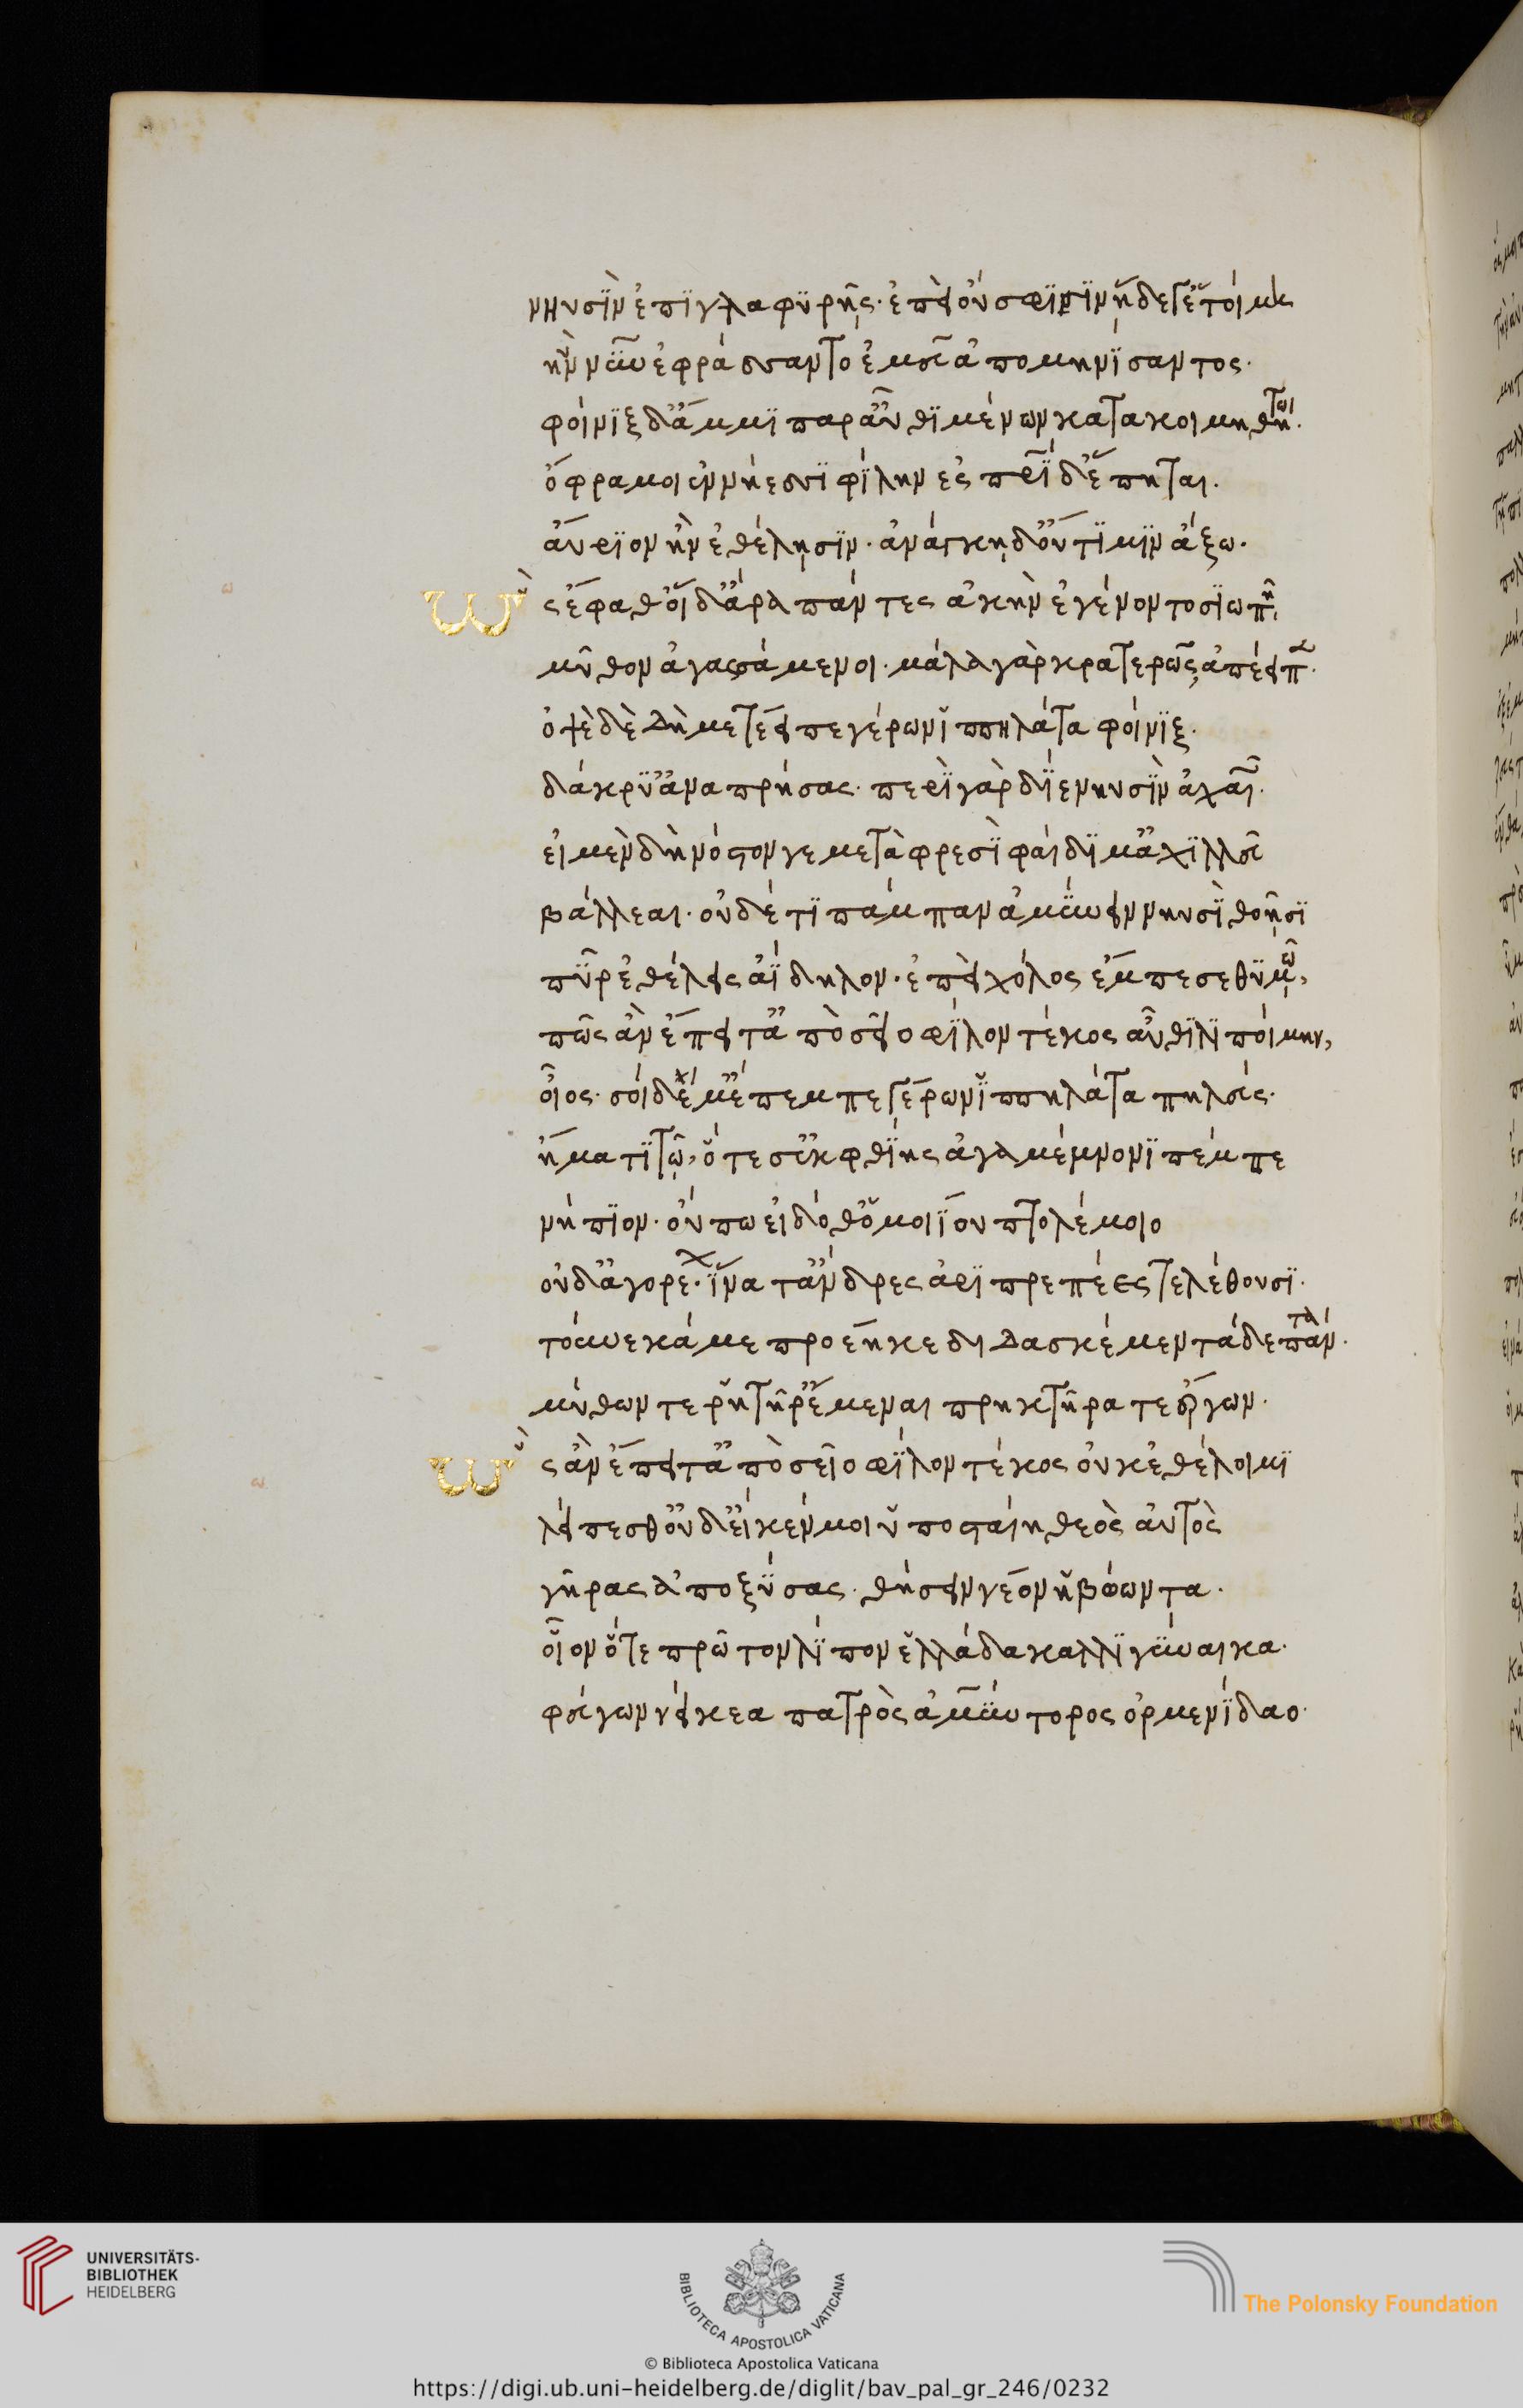 νηυσὶν ἐπὶ γλαφυρῇς· ἐπεὶ οὔ σφισιν ἥδε γ' ἑτοίμη
ἣν νῦν ἐφράσσαντο ἐμεῦ ἀπομηνίσαντος·
φοίνιξ δ' ἄμμι παρ' αὖθι μένων κατακοιμηθήτω·
ὄφρα μοι ἐν νήεσσι φίλην ἐς πατρίδ' ἕπηται·
αὔριον ἢν ἐθέλῃσιν· ἀνάγκῃ δ' οὔ τί μιν ἄξω·
Ὣς ἔφαθ' οἱ δ' ἄρα πάντες ἀκὴν ἐγένοντο σιωπῇ
μῦθον ἀγασσάμενοι· μάλα γὰρ κρατερῶς ἀπέειπε·
ὀψὲ δὲ δὴ μετέειπε γέρων ἱππηλάτα φοίνιξ·
δάκρυ' ἀναπρήσας· περὶ γὰρ δίε νηυσὶν ἀχαιῶν·
εἰ μὲν δὴ νόστον γε μετὰ φρεσὶ φαίδιμ' ἀχιλλεῦ
βάλλεαι· οὐδέ τι πάμπαν ἀμύνειν νηυσὶ θοῇσι
πῦρ ἐθέλεις ἀΐδηλον· ἐπεὶ χόλος ἔμπεσε θυμῷ,
πῶς ἂν ἔπειτ' ἀπὸ σεῖο φίλον τέκος αὖθι λιποίμην,
οἶος· σοὶ δέ μ' ἔπεμπε γέρων ἱππηλάτα πηλεύς·
ἤματι τῷ, ὅτε σ' ἐκ φθίης ἀγαμέμνονι πέμπε
νήπιον· οὔπω εἰδόθ' ὁμοιΐου πτολέμοιο
οὐδ' ἀγορέων· ἵνα τ' ἄνδρες ἀριπρεπέες τελέθουσι·
τοὔνεκά με προέηκε διδασκέμεν τάδε πάντα·
μύθων τε ῥητῆρ' ἔμεναι πρηκτῆρά τε ἔργων·
Ὣς ἂν ἔπειτ' ἀπὸ σεῖο φίλον τέκος οὐκ ἐθέλοιμι
λείπεσθ' οὐδ' εἴ κέν μοι ὑποσταίη θεὸς αὐτὸς
γῆρας ἀποξύσας· θήσειν νέον ἡβώωντα·
οἷον ὅτε πρῶτον λίπον ἑλλάδα καλλιγύναικα·
φεύγων νείκεα πατρὸς ἀμύντορος ὀρμενίδαο·
ω
ω
UNIVERSITÄTS-
BIBLIOTHEK
HEIDELBERG
BIBLIOTECA APOSTOLICA VATICANA
The Polonsky Foundation
© Biblioteca Apostolica Vaticana
https://digi.ub.uni-heidelberg.de/diglit/bav_pal_gr_246/0232